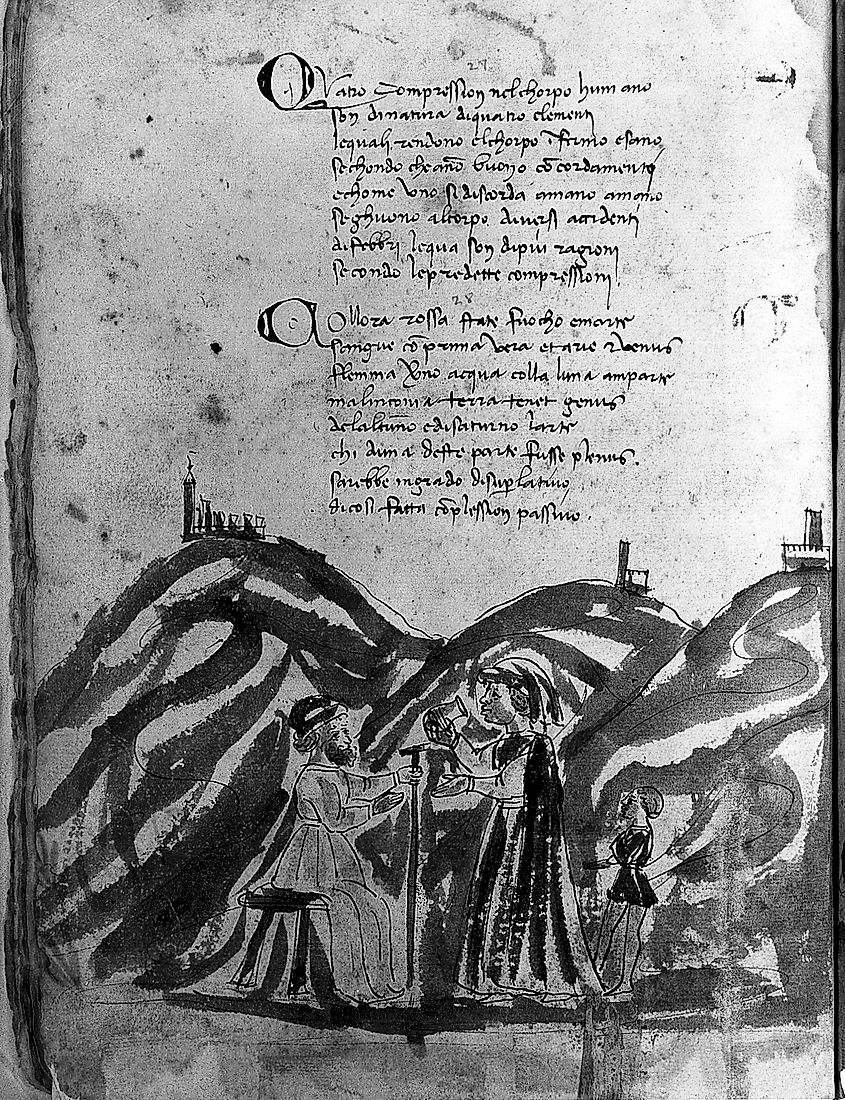 27
Quatro Compression nel chorpo humano
son dinatura diquatro elementi
lequali rendono elchorpo īfermo esano
sechondo cheanō buono cōcordamento
echome uno sidiscorda amano amano
seghuono alcorpo diuersi accidenti
difebbri lequa son dipiu ragioni
secondo lepredette compressioni
28
Collora rossa state fuocho emarte
sangue cō prima uera etarie &venus
flemma acqua colla luna amparte
malinconia terra tenet genus
edisaturno larte
chi duna deste parte fusse plenus
sarebbe ingrado disuplatiuo
dicosi fatta cōplession passiuo